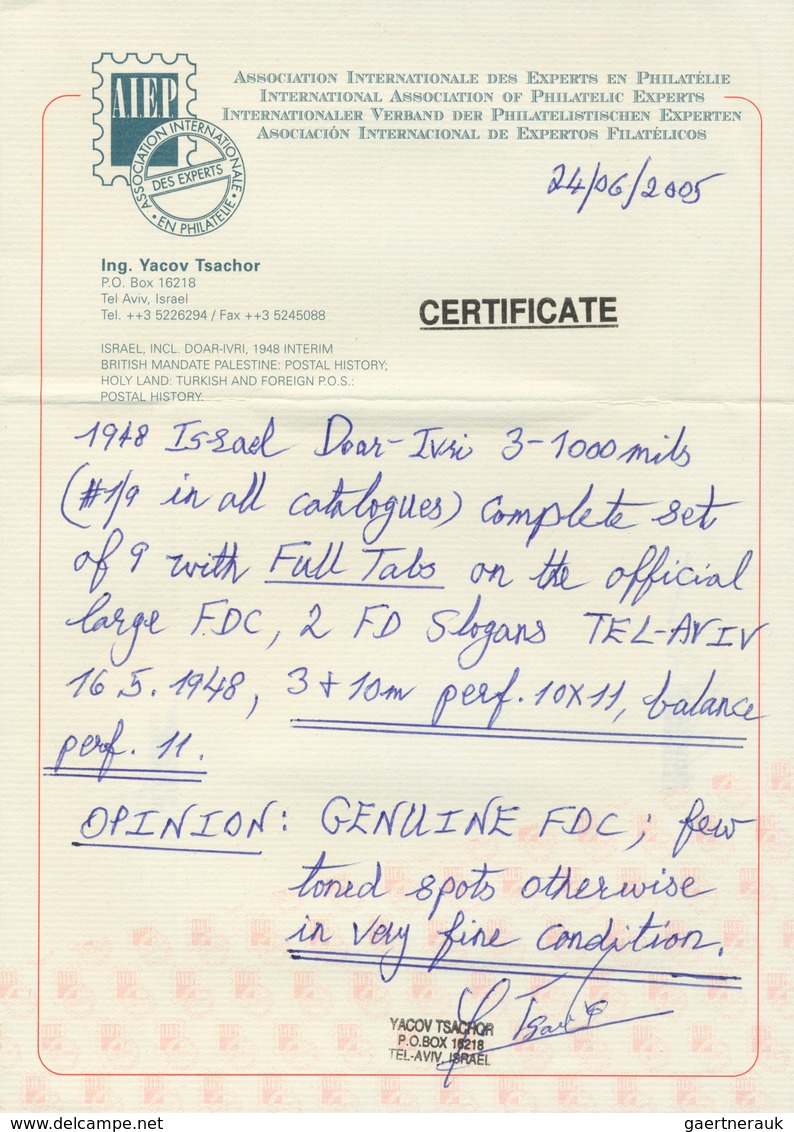 A.I.E.P.
ASSOCIATION INTERNATIONALE
DES EXPERTS
• EN PHILATELIE •
ASSOCIATION INTERNATIONALE DES EXPERTS EN PHILATÉLIE
INTERNATIONAL ASSOCIATION OF PHILATELIC EXPERTS
INTERNATIONALER VERBAND DER PHILATELISTISCHEN EXPERTEN
ASOCIACIÓN INTERNACIONAL DE EXPERTOS FILATÉLICOS
24/06/2005
Ing. Yacov Tsachor
P.O. Box 16218
Tel Aviv, Israel
Tel. ++3 5226294 / Fax ++3 5245088
CERTIFICATE
ISRAEL, INCL. DOAR-IVRI, 1948 INTERIM
BRITISH MANDATE PALESTINE: POSTAL HISTORY;
HOLY LAND: TURKISH AND FOREIGN P.O.S.:
POSTAL HISTORY.
1948 Israel Doar-Ivri 3-1000 mils
(#1/9 in all catalogues) complete set
of 9 with Full Tabs on the official
large FDC, 2 FD Slogans TEL-AVIV
16.5.1948, 3+10m perf. 10x11, balance
perf. 11.
OPINION: GENUINE FDC; few
toned spots otherwise
in very fine condition.
YACOV TSACHOR
P.O.BOX 16218
TEL-AVIV, ISRAEL
gaertnerauk